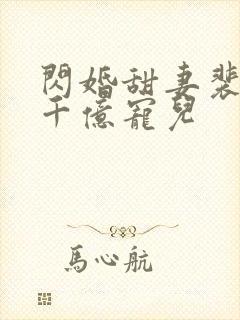 閃婚甜妻裴
千億寵兒
馬心航